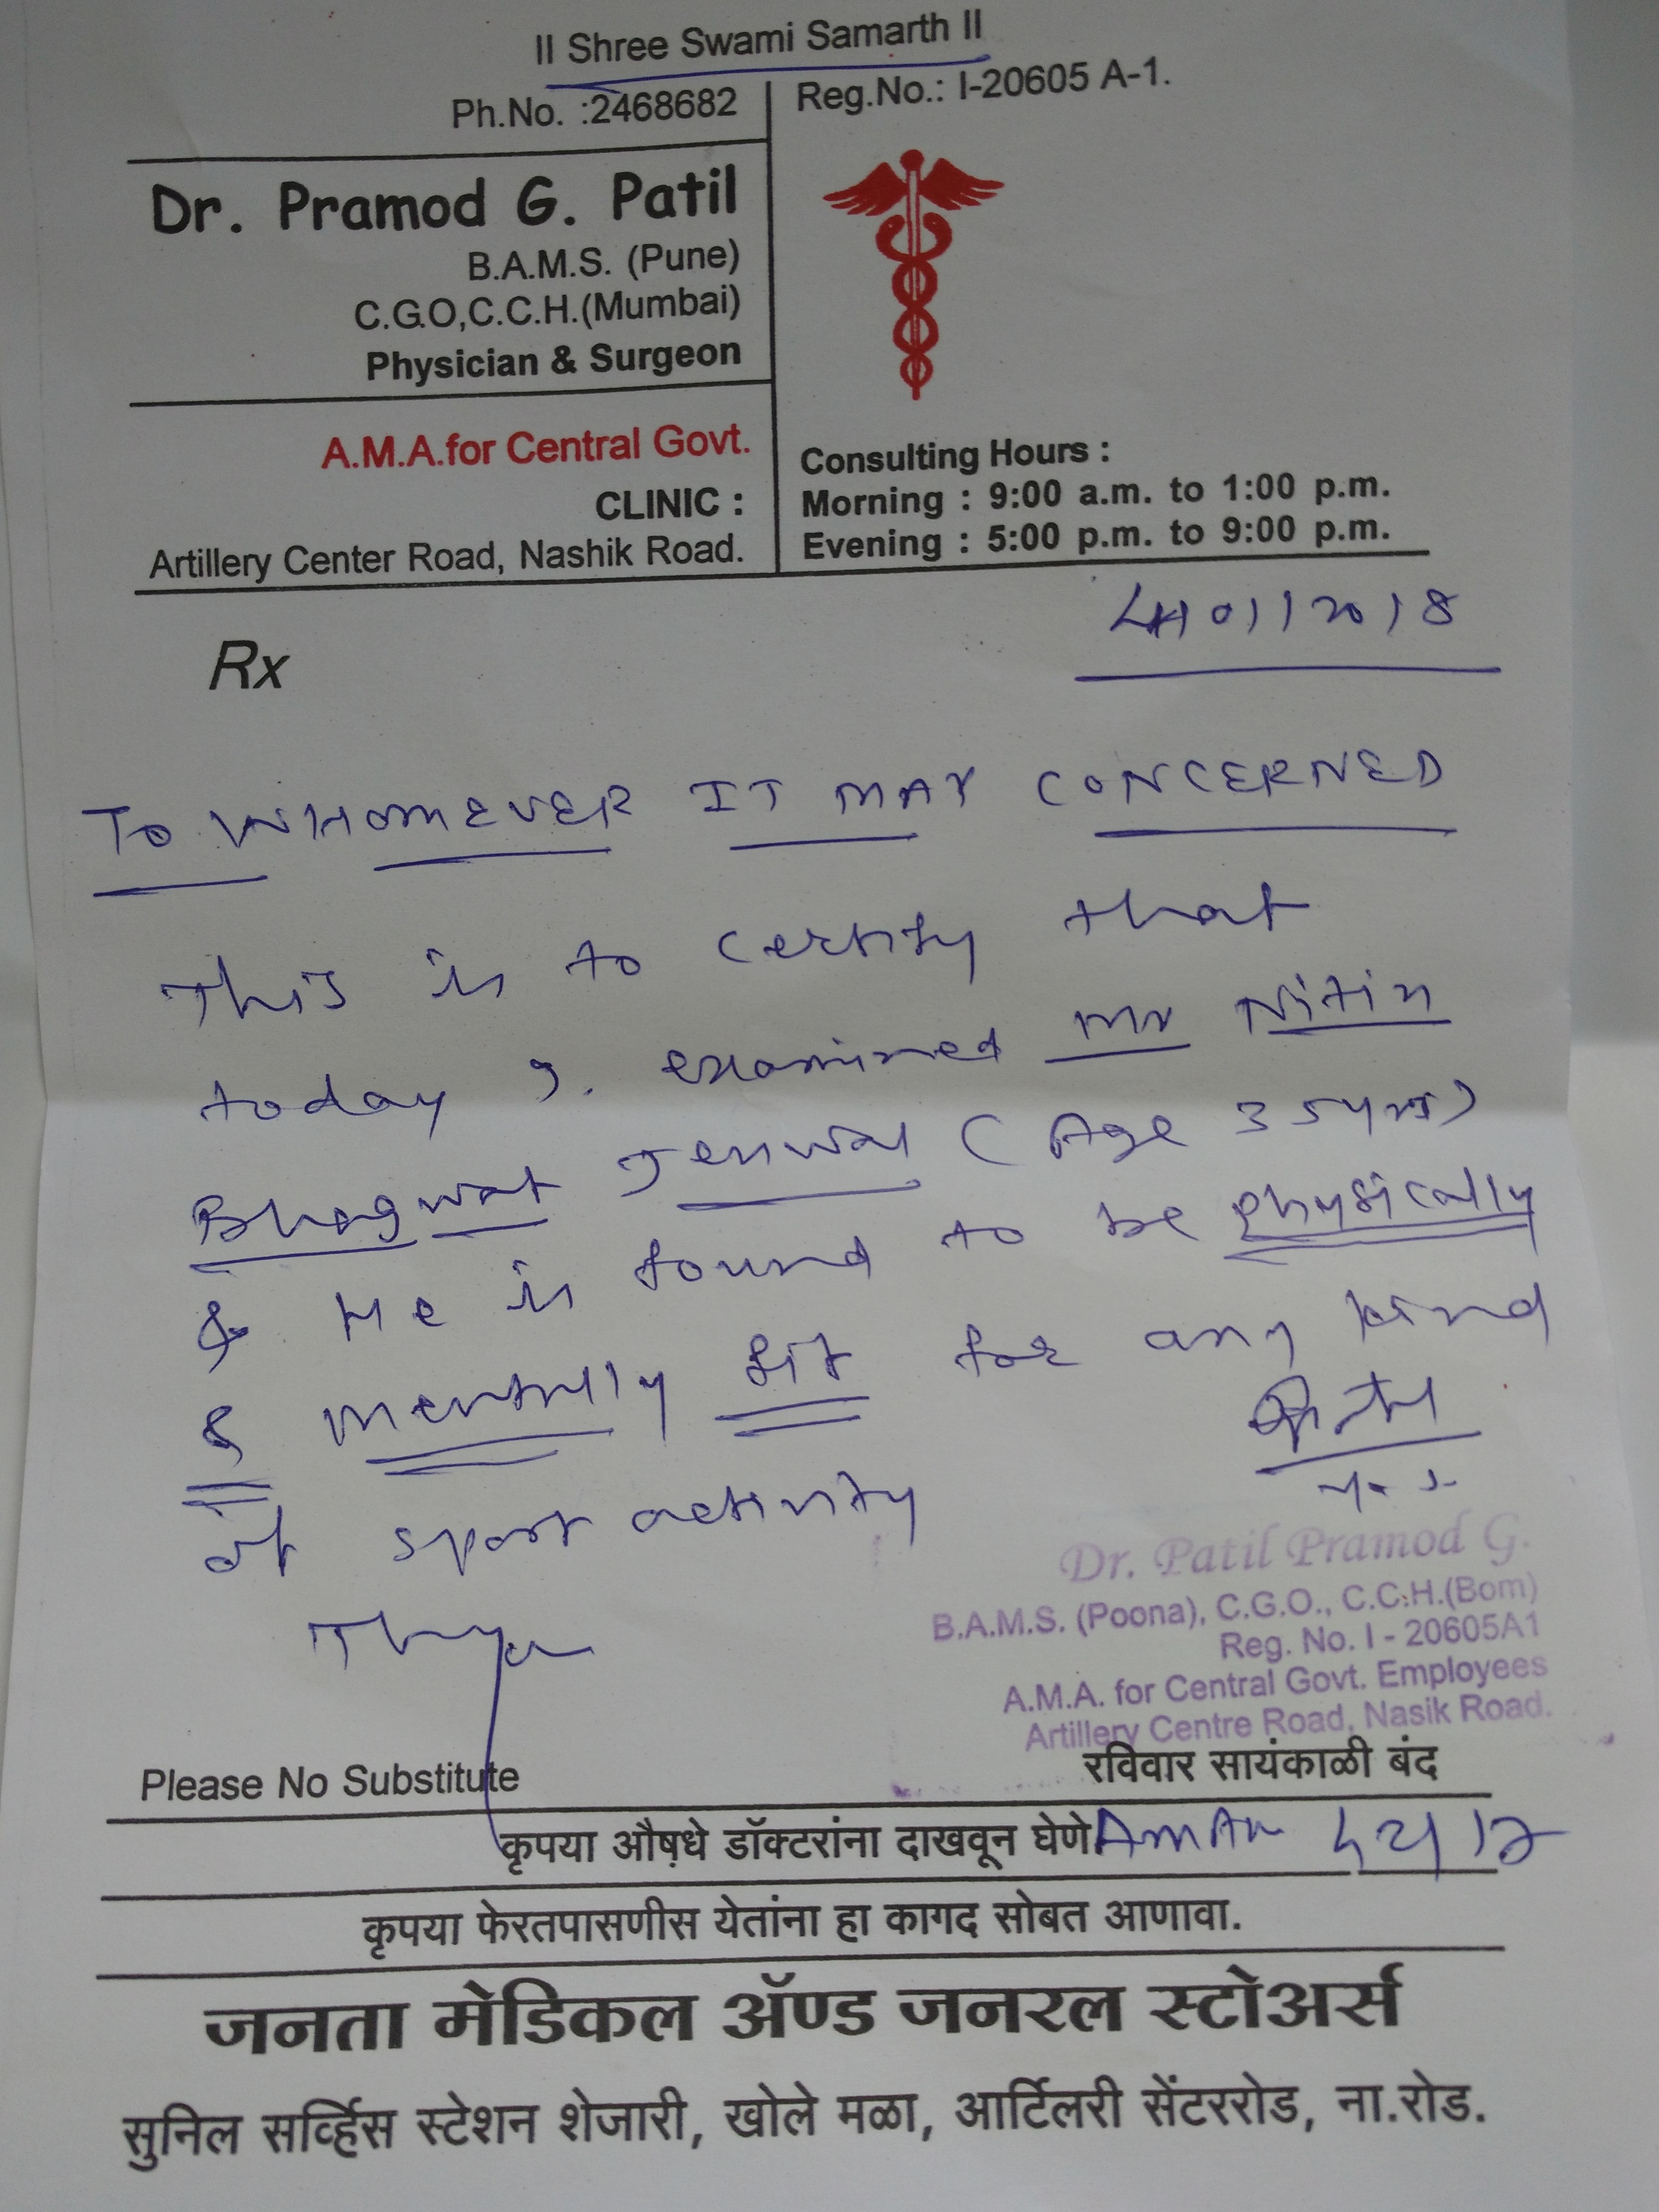 II Shree Swami Samarth II
Ph.No. :2468682
Reg.No.: I-20605 A-1.
Dr. Pramod G. Patil
B.A.M.S. (Pune)
C.G.O,C.C.H.(Mumbai)
Physician & Surgeon
A.M.A.for Central Govt.
CLINIC :
Artillery Center Road, Nashik Road.
Consulting Hours :
Morning : 9:00 a.m. to 1:00 p.m.
Evening : 5:00 p.m. to 9:00 p.m.
Rx
TO WHOMEVER IT MAY CONCERNED
This is to certify that
today I. examined Mr Nitin
Bhagwat (Age 35 yrs)
& He is found to be physically
& mentally fit for any kind
of sport activity
Dr. Patil Pramod G.
B.A.M.S. (Poona), C.G.O., C.C.H.(Bom)
Reg. No. I - 20605A1
A.M.A. for Central Govt. Employees
Artillery Centre Road, Nasik Road.
Please No Substitute
रविवार सायंकाळी बंद
कृपया औषधे डॉक्टरांना दाखवून घेणे
कृपया फेरतपासणीस येतांना हा कागद सोबत आणावा.
जनता मेडिकल ॲण्ड जनरल स्टोअर्स
सुनिल सर्व्हिस स्टेशन शेजारी, खोले मळा, आर्टिलरी सेंटररोड, ना.रोड.